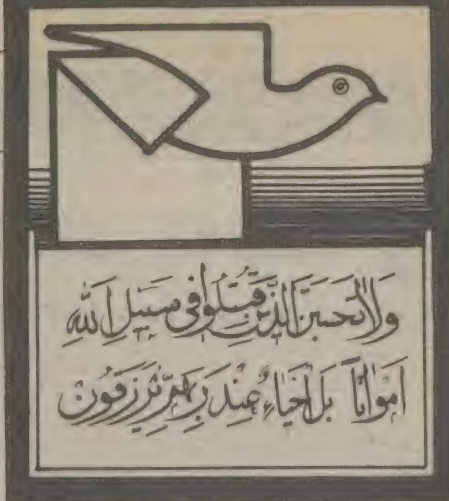 وَلَا تَحْسَبَنَّ الَّذِينَ قُتِلُوا فِي سَبِيلِ اللَّهِ
اَمْوَاتًا بَلْ اَحْيَاءٌ عِنْدَ رَبِّهِمْ يُرْزَقُونَ